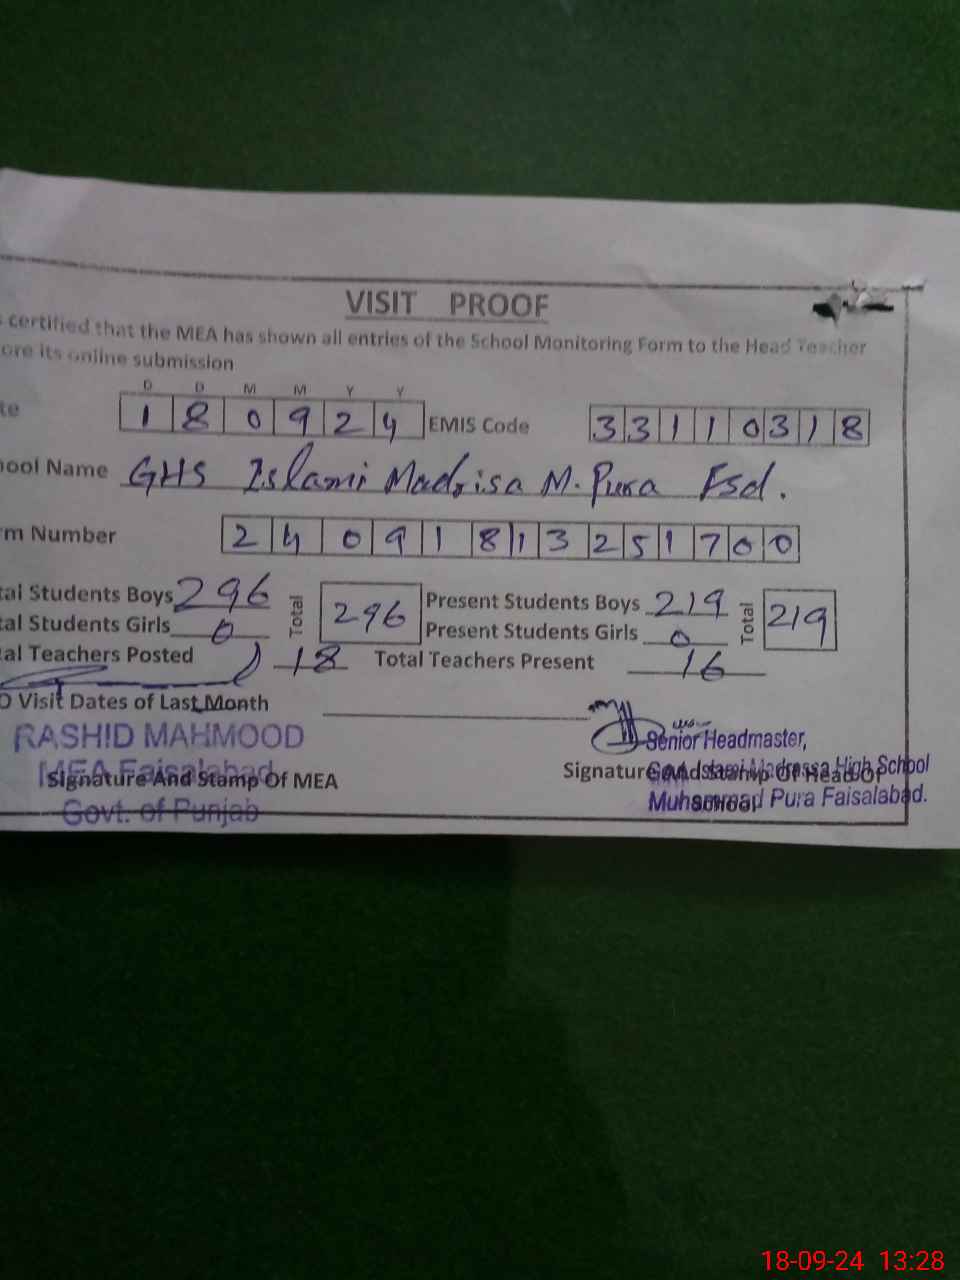 VISIT PROOF
certified that the MEA has shown all entries of the School Monitoring Form to the Head Teacher
ore its online submission
D D M M Y Y
te 1 8 0 9 2 4 EMIS Code 3 3 1 1 0 3 1 8
ool Name GHS Islami Madrisa M. Pura Fsd.
m Number 2 4 0 9 1 8 1 3 2 5 1 7 0 0
tal Students Boys 296 Total 296 Present Students Boys 219 Total 219
tal Students Girls 0 Present Students Girls 0
al Teachers Posted 18 Total Teachers Present 16
O Visit Dates of Last Month
RASHID MAHMOOD
MEA Faisalabad
Signature And Stamp Of MEA
Govt. of Punjab
Senior Headmaster,
Govt. Islami Madrassa High School
Signature And Stamp Of Head Of
Muhammad Pura Faisalabad.
School
18-09-24 13:28